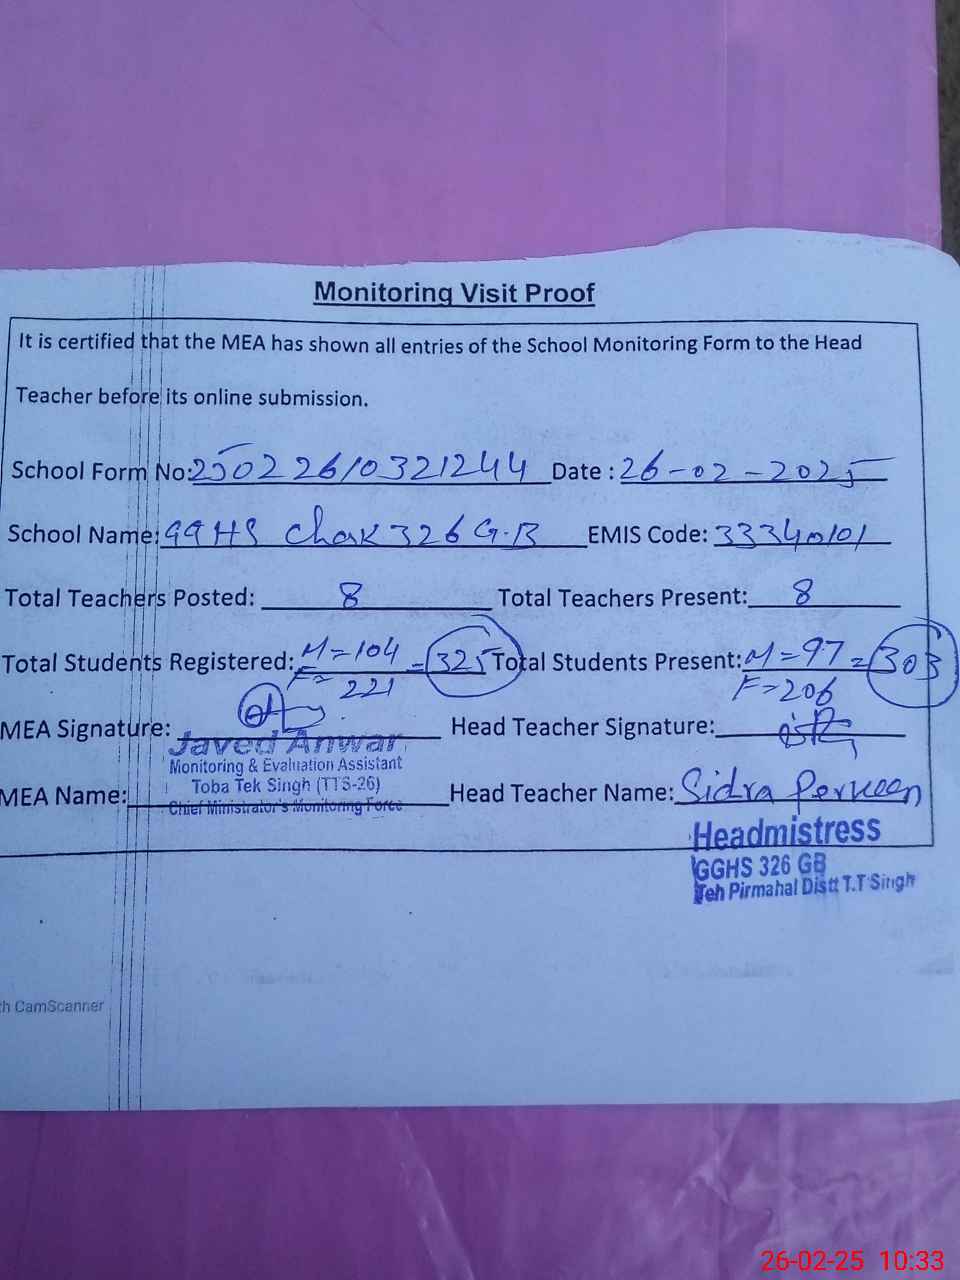 Monitoring Visit Proof
It is certified that the MEA has shown all entries of the School Monitoring Form to the Head
Teacher before its online submission.
School Form No: 25022610321244 Date : 26-02-2025
School Name: GGHS Chak 326 G.B EMIS Code: 33340101
Total Teachers Posted: 8 Total Teachers Present: 8
Total Students Registered: M=104 = 325 Total Students Present: M=97 = 303
F=221 F=206
MEA Signature: Head Teacher Signature:
Javed Anwar
Monitoring & Evaluation Assistant
Toba Tek Singh (TTS-26)
MEA Name: Head Teacher Name: Sidra Perveen
Chief Ministrator's Monitoring Force
Headmistress
GGHS 326 GB
Teh Pirmahal Distt T.T Singh
th CamScanner
26-02-25 10:33